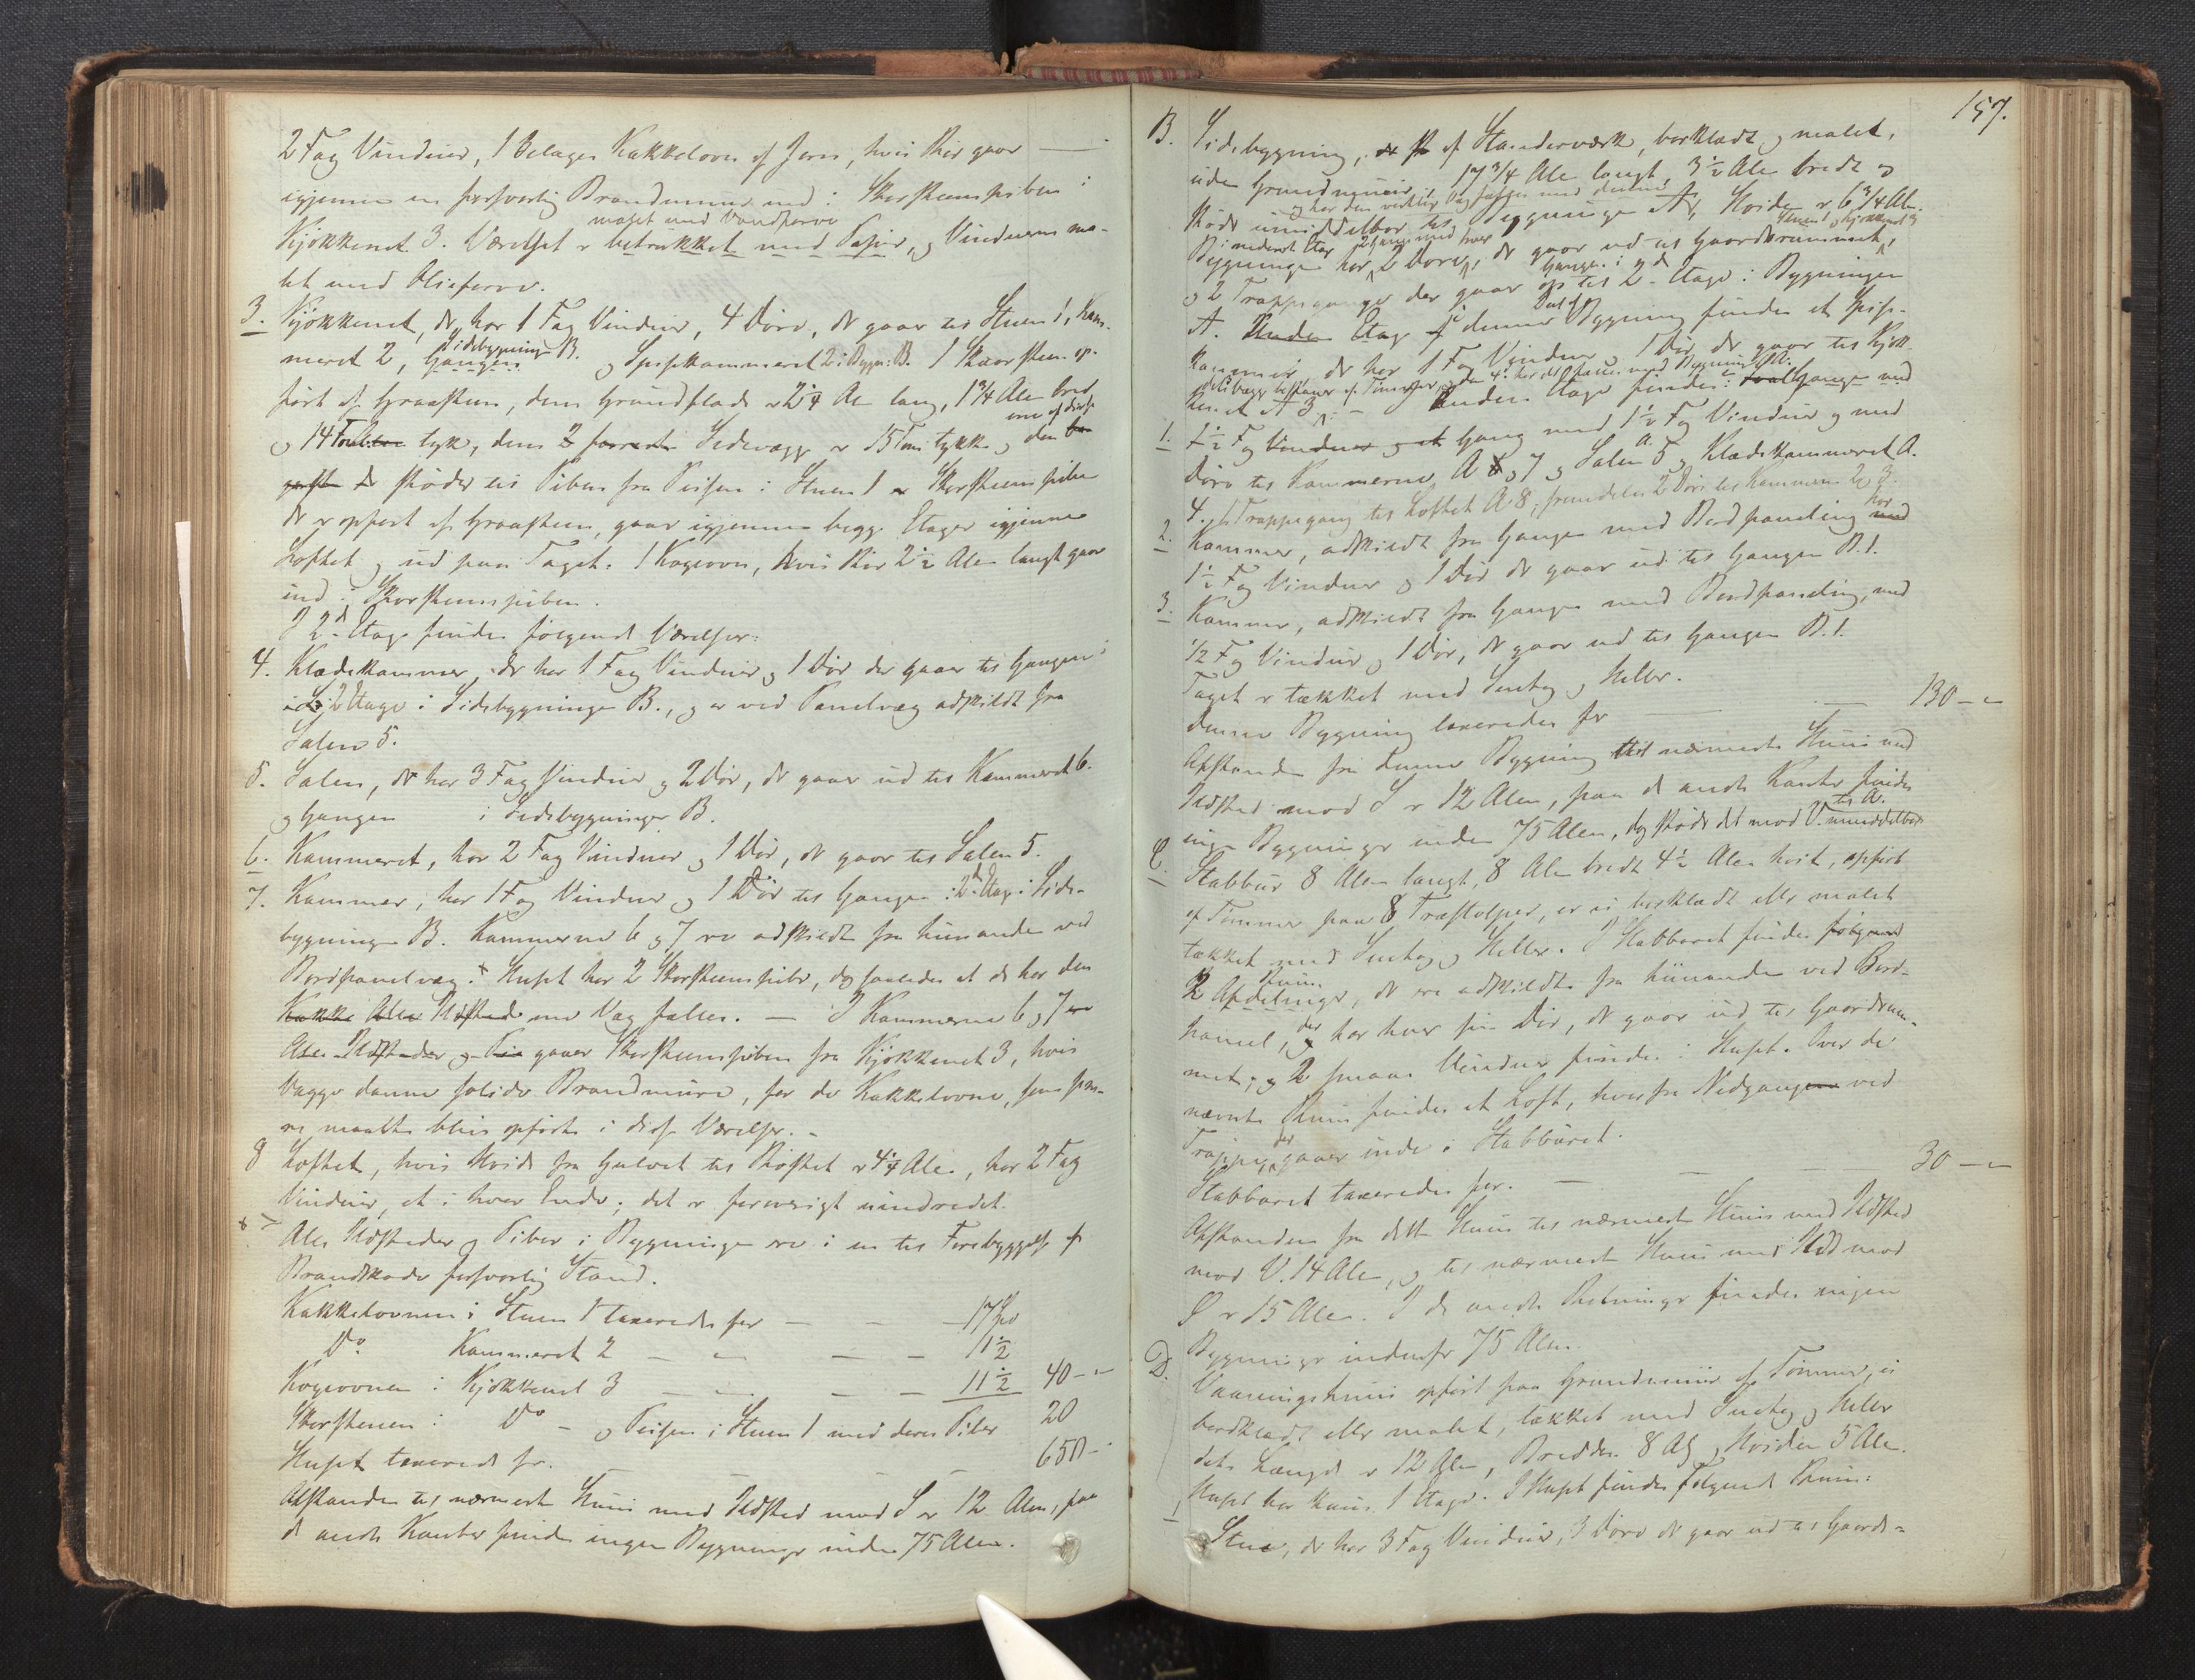 2 Fag Vinduer, 1 Etages Kakkelovn af Jern, hvis Rør gaar
igjennem en forsvarlig Brandmuur ind i Skorsteenspiben i
malet med Vandfarve
Kjøkkenet 3. Værelset er betrukket med Papir, og Vinduerne ma-
let med Oliefarve.
3. Kjøkkenet, der har 1 Fag Vinduer, 4 Døre, der gaar til Stuen 1, Kam-
Sidebygningen B.
meret 2, Gangen og Spisekammeret 2 i Bygn: B. 1 Skorsteen op-
ført af Graasteen, dens Grundflade er 2¼ Al lang, 1¾ Alen bred
ene af disse
og 14 Tommer tyk, dens 2 Sidevægge er 15 Tom tykke og den
støder til Piben fra Peisen i Stuen 1 Skorsteenspiben
der er opført af Graasteen, gaar igjennem begge Etager igjennem
Loftet og ud paa Taget. 1 Kogeovn, hvis Rør 2½ Alen langt gaar
ind i Skorsteenspiben.
I 2d Etage findes følgende Værelser:
4. Klædekammer, der har 1 Fag Vinduer og 1 Dør der gaar til Gangen
i 2 Etage i Sidebygningen B., og er ved Panelvæg adskildt fra
Salen 5.
5. Salen, der har 3 Fag Vinduer og 2 Dør, der gaar ud til Kammeret 6.
og Gangen i Sidebygningen B.
6. Kammeret, har 2 Fag Vinduer og 1 Dør, der gaar til Salen 5.
7. Kammer, har 1 Fag Vinduer og 1 Dør til Gangen i 2d Etage i Side-
bygningen B. Kammerne 6 og 7 ere adskildt fra hinanden ved
Bordpanelvæg. Huset har 2 Skorsteenspiber, dog saaledes at de har den
ene Væg fælles. — I Kammerne 6 og 7
gaaer Skorsteenspiben fra Kjøkkenet 3, hvis
Vægge danne solide Brandmure, for de Kakkelovne, som sene-
re maatte blive opført i disse Værelser. –
8 Loftet, hvis Høide fra Gulvet til Røstet er 4¼ Alen, har 2 Fag
Vinduer, et i hver Ende; det er forøvrigt uindredet.
Alle Ildsteder og Piber i Bygningen ere i en til Forebyggelse af
Brandskade forsvarlig Stand.
Kakkelovnen i Stuen 1 taxeredes for — — 17
Do. Kammeret 2 — — — 11½
Kogeovnen i Kjøkkenet 3 — — — 11½ 40 –
Skorstenen i Do – og Peisen i Stuen 1 med deres Piber 20
Huset taxeredes for. — — — 650 –
Afstanden til nærmeste Huus med Ildsted mod S er 12 Alen, paa
de andre Kanter findes ingen Bygninger inden 75 Alen.
157.
B. Sidebygning, af Stenderværk, bordklædt og malet,
uden Grundmuur, 17¾ Alen langt, 3½ Alen bredt og
støder umiddelbar til Bygningen A, Høiden er 6¾ Alen.
Stuen 1 og Kjøkkenet 3
i nederst Etage
Bygningen har 2 Døre, der gaar ud til Gaardsrummet,
og 2 Trappegange der gaar op til 2d Etage i Bygningen
A. Under Etage i denne Bygning findes et Spise-
kammer, der har 1 Fag Vinduer og 1 Dør der gaar til Kjøk-
kenet A 3. — Anden Etage findes: Gange med
1. Gang med 1½ Fag Vinduer og med
Døre til Kammerne A 7 og Salen 5 og Klædekammeret A.
4. Trappegang til Loftet A 8, fremdeles 2 Døre til Kammerne 2 og 3.
2. Kammer, adskildt fra Gangen med Bordpaneling har
1½ Fag Vinduer og 1 Dør der gaar ud til Gangen B.1.
3. Kammer, adskildt fra Gangen med Bordpaneling, med
½ Fag Vinduer og 1 Dør, der gaar ud til Gangen B.1.
Taget er tækket med Sutag og Heller.
Denne Bygning taxeredes for — — 130 –
Afstanden fra denne Bygning til nærmeste Huus med
Ildsted mod S er 12 Alen, paa de andre Kanter findes
til A.
ingen Bygninger inden 75 Alen, dog støder det mod V. umiddelbar
C. Stabbur 8 Alen langt, 8 Alen bredt 4½ Alen høit, opført
af Tømmer paa 8 Træstolper, er ei bordklædt eller malet
tækket med Sutag og Heller. I Stabburet findes følgende
Rum.
2 Afdelinger, der ere adskildte fra hinanden ved Bord-
panel, der har hver sin Dør, der gaar ud til Gaardsrum-
met, og 2 smaae Vinduer findes i Huset. Over de
nævnte Rum findes et Loft, hvorfra Nedgangen ved
Trappe, der gaaer inde i Stabburet.
Stabburet taxeredes for. — — — 30 –
Afstanden fra dette Huus til nærmeste Huus med Ildsted
mod V. 14 Alen, og til nærmeste Huus med Ild mod
Ø er 15 Alen. I de andre Retninger findes ingen
Bygninger indenfor 75 Alen.
D. Vaaningshuus opført paa Grundmuur af Tømmer, ei
bordklædt eller malet, tækket med Sutag og Heller
dets Længde er 12 Alen, Bredden 8 Al og Høiden 5 Alen.
Huset har kuns 1 Etage. I Huset findes følgende Rum:
1 Stue, der har 3 Fag Vinduer, 3 Døre der gaar ud til Gaards-